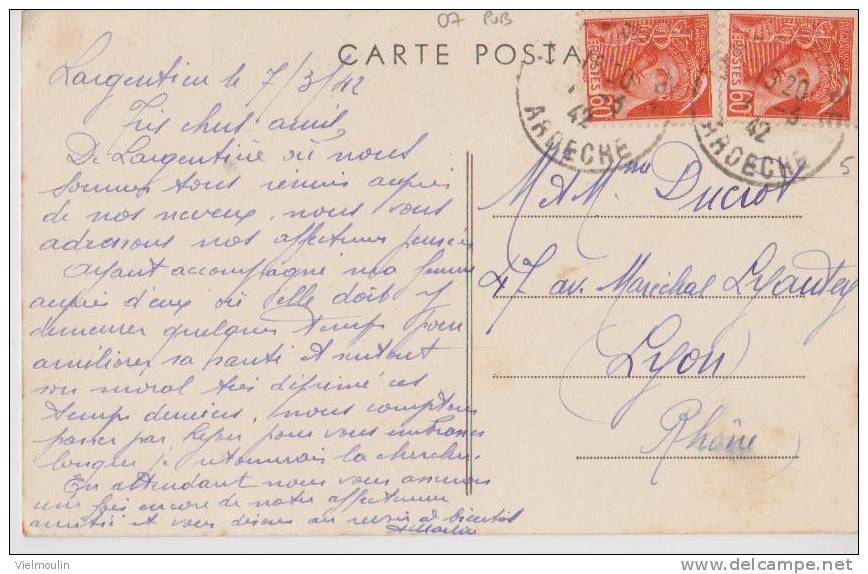 07 PUB
CARTE POSTA
60
POSTES
60
POSTES
18 20
3
42
ARDECHE
18 20
3
42
ARDECHE
5
Largentière le 7/3/42
Très chers amis,
De Largentière où nous
sommes tous réunis auprès
de nos neveux, nous vous
adressons nos affectueuses pensées
Ayant accompagné ma femme
auprès d'eux où elle doit y
demeurer quelques temps pour
améliorer sa santé et surtout
son moral très déprimé ces
temps derniers, nous comptons
passer par Lyon pour vous embrasser
lorsque je retournerais la chercher.
En attendant nous vous assurons
une fois encore de notre affectueuse
amitié et vous disons au revoir et bientôt
M et Mme Ducrot
47 av. Maréchal Lyautey
(Lyon)
Rhône
Vielmoulin
delcampe.net